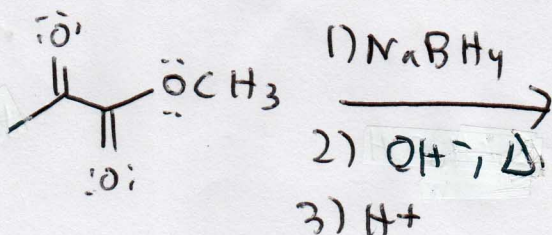 :Ö:
ÖCH3
:O:
1) NaBH4
2) OH-, Δ
3) H+